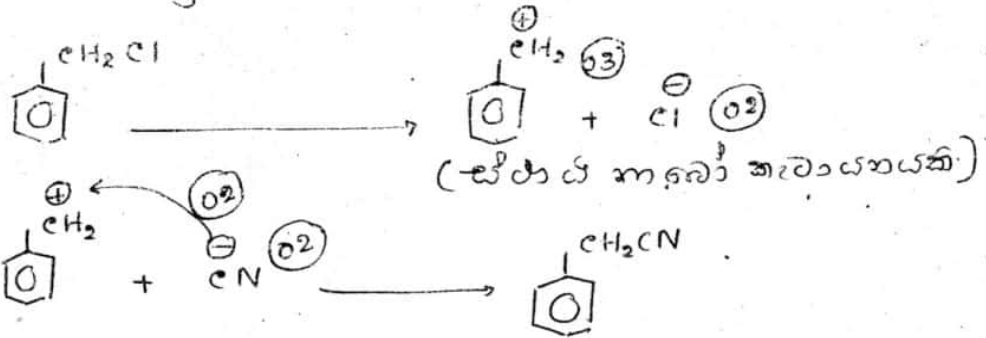 CH₂Cl ⟶ ⊕ CH₂ (03) + ⊖ Cl (02)
(ස්ථායී කාබෝ කැටායනයකි.)
⊕ CH₂ + ⊖ CN (02) (02) ⟶ CH₂CN